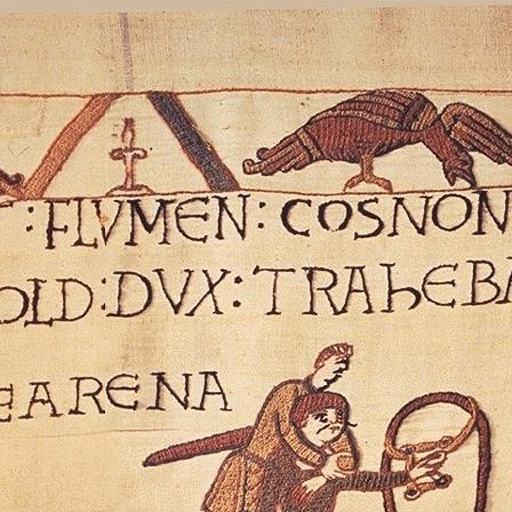 T : FLVMEN : COSNON
OLD : DVX : TRAhEBA
E ARENA